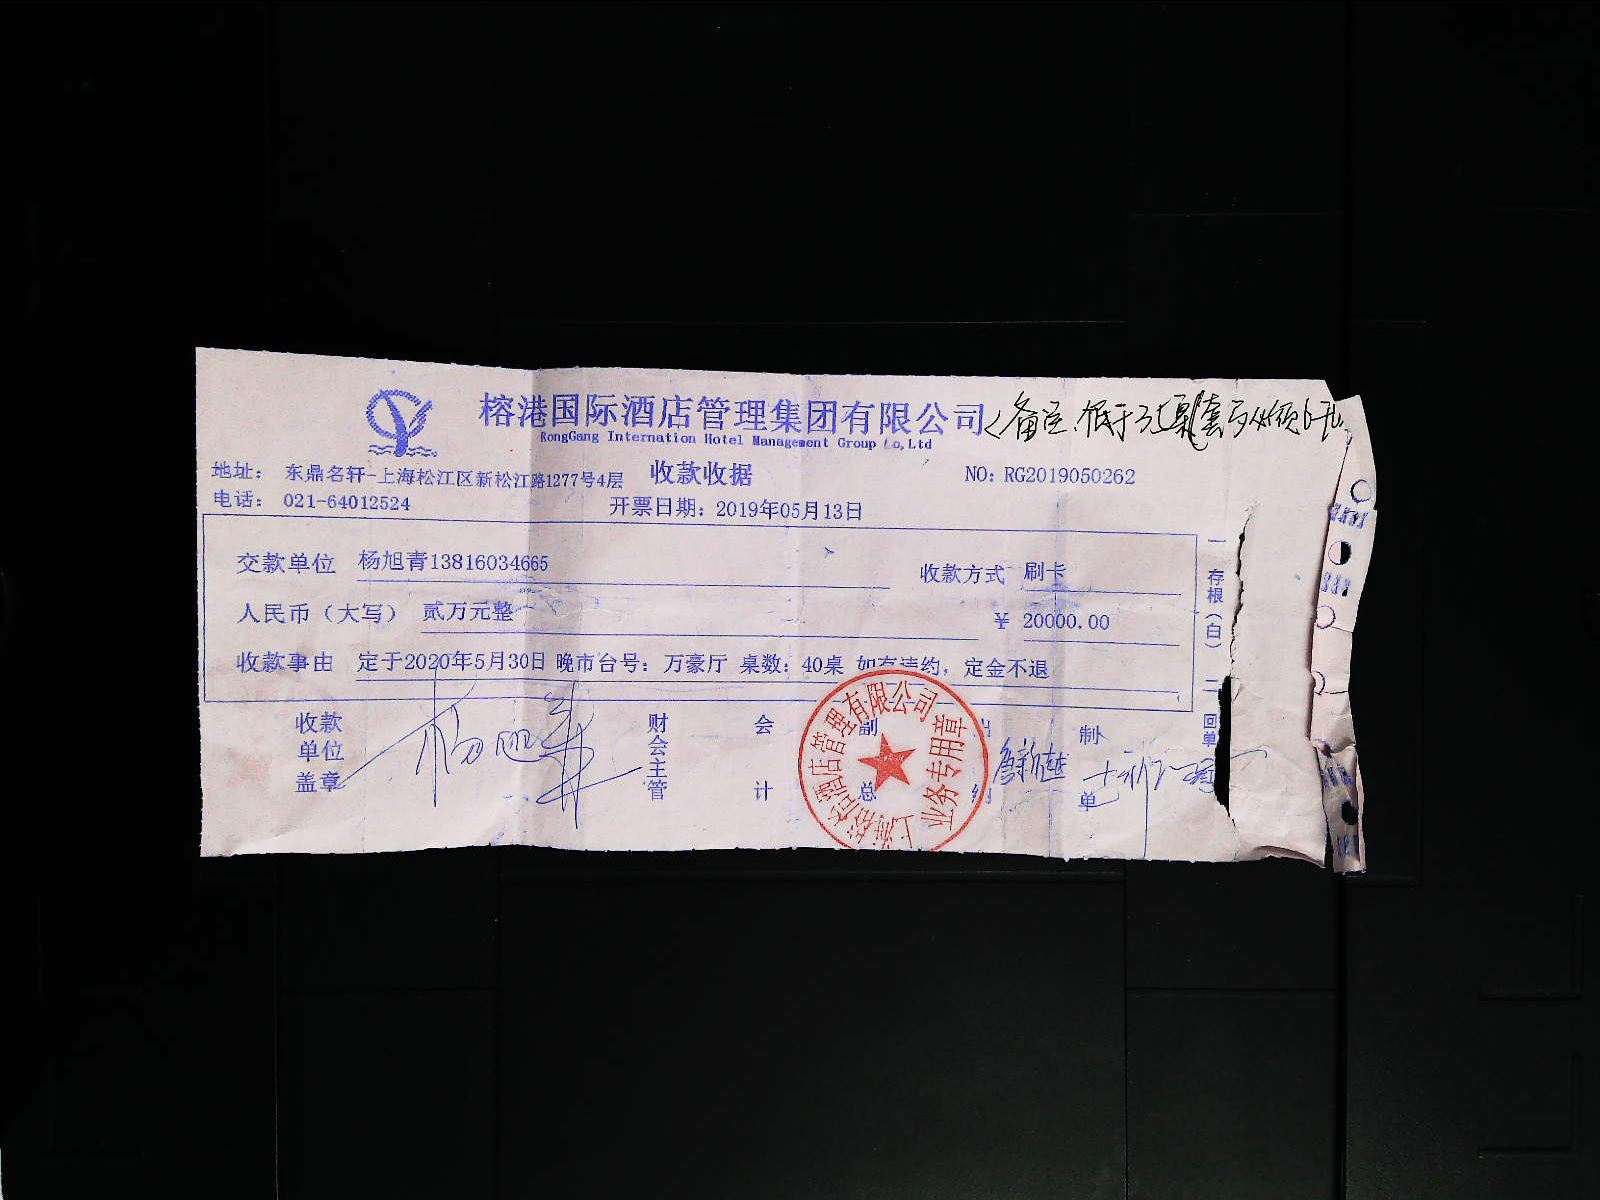 榕港国际酒店管理集团有限公司
RongGang Internation Hotel Management Group Co,Ltd
备注.低于
地址： 东鼎名轩-上海松江区新松江路1277号4层 收款收据 NO：RG2019050262
电话： 021-64012524 开票日期：2019年05月13日
交款单位 杨旭青13816034665 收款方式 刷卡
人民币（大写） 贰万元整 ￥ 20000.00
收款事由 定于2020年5月30日 晚市台号：万豪厅 桌数：40桌 如有违约，定金不退
一 存根（白） 二 回单
收款单位盖章 杨旭青 财会主管 会计 副总 出纳 制单
酒店管理有限公司
业务专用章